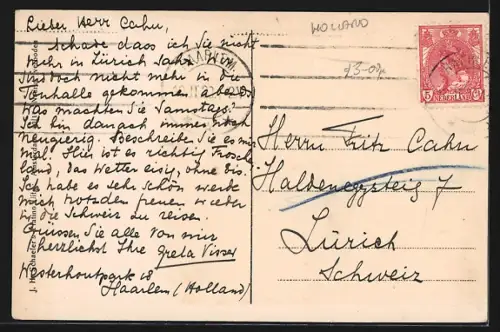 Lieber Herr Cahn,
Schade dass ich Sie nicht
mehr in Zürich sah.
Sind doch nicht mehr in die
Tonhalle gekommen, aber
was machten Sie Samstags?
Ich bin danach immer noch
neugierig. Beschreiben Sie es mir
mal! Hier ist es richtig Frosch-
land, das Wetter eisig, ohne bis.
Ich habe es sehr schön werde
mich trotzdem freuen wieder
in die Schweiz zu reisen.
Grüssen Sie alle von mir
herzlichst Ihre Greta Visser
Westerhoutpark 18
Haarlem (Holland)
HOLLAND
5
NEDERLAND
Herrn Fritz Cahn
Haldeneggsteig 7
Zürich
Schweiz